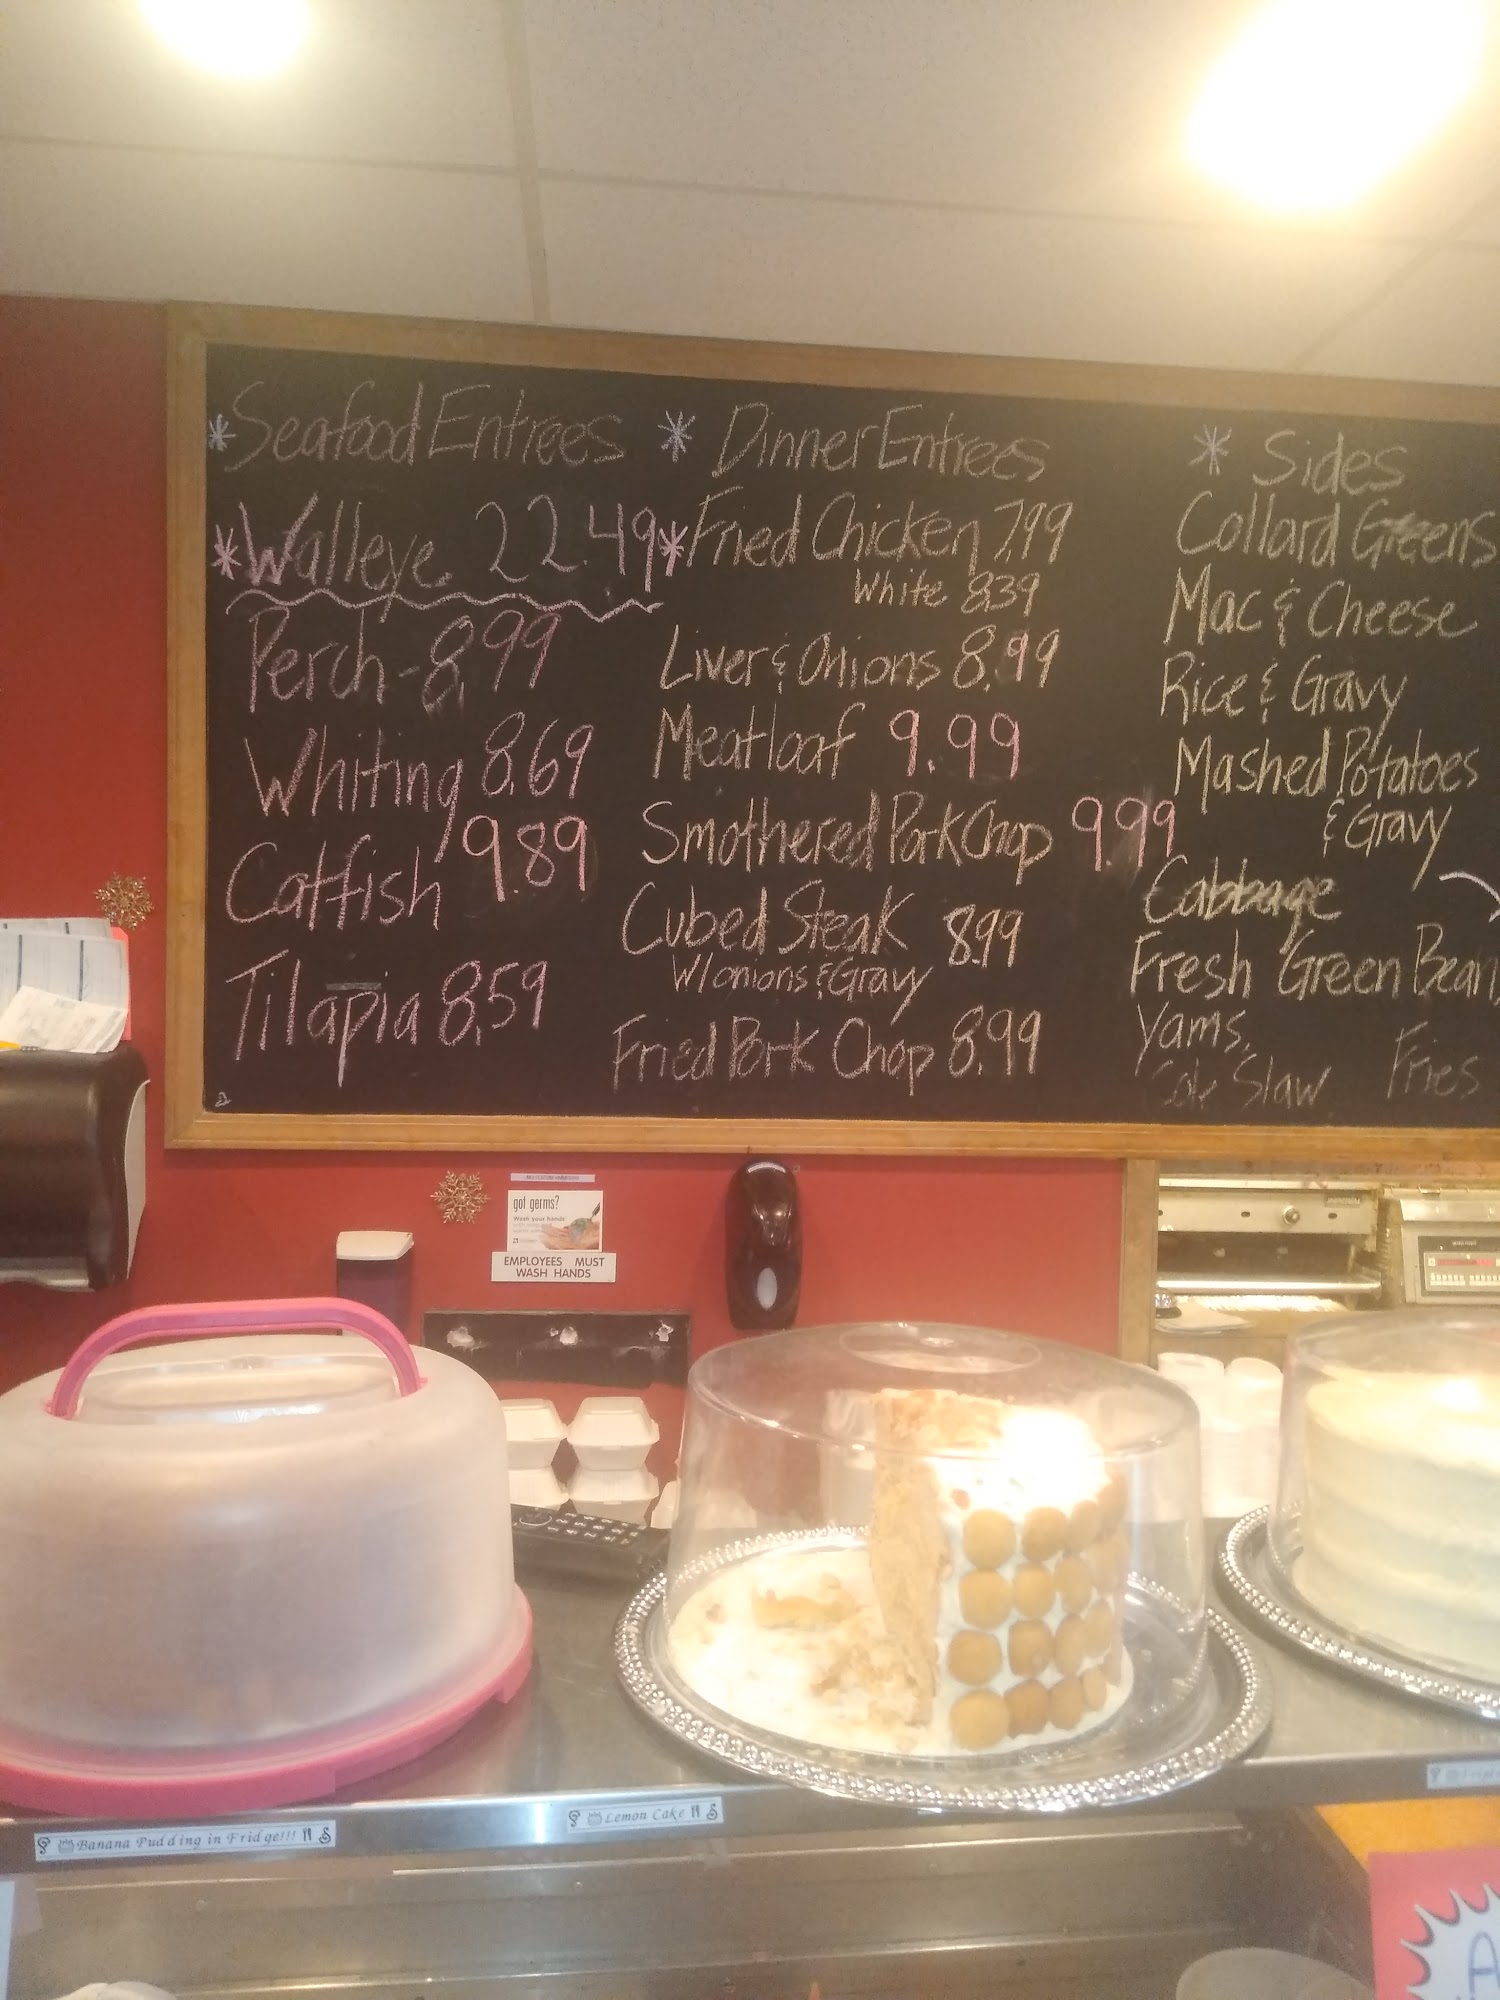 *Seafood Entrees
*Walleye 22.49
Perch-8.99
Whiting 8.69
Catfish 9.89
Tilapia 8.59
* Dinner Entrees
*Fried Chicken 7.99
White 8.39
Liver & Onions 8.99
Meatloaf 9.99
Smothered Pork Chop 9.99
Cubed Steak 8.99
W/onions & Gravy
Fried Pork Chop 8.99
* Sides
Collard Greens
Mac & Cheese
Rice & Gravy
Mashed Potatoes
& Gravy
Cabbage
Fresh Green Bean
Yams,
Slaw Fries
got germs?
Wash your hands
EMPLOYEES MUST
WASH HANDS
Banana Pudding in Fridge!!!
Lemon Cake
A